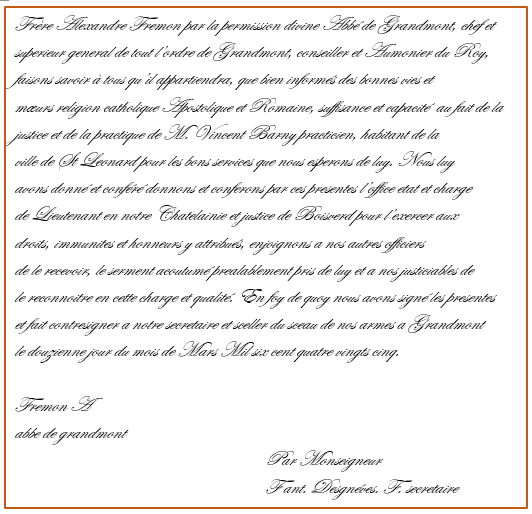 Frère Alexandre Fremon par la permission divine Abbé de Grandmont, chef et
superieur general de tout l'ordre de Grandmont, conseiller et Aumonier du Roy,
faisons savoir à tous qu'il appartiendra, que bien informés des bonnes vies et
mœurs religion catholique Apostolique et Romaine, suffisance et capacité au fait de la
justice et de la practique de M. Vincent Barny practicien, habitant de la
ville de St Leonard pour les bons services que nous esperons de luy. Nous luy
avons donné et conféré donnons et conferons par ces presentes l'office etat et charge
de Lieutenant en notre Chatelainie et justice de Boisverd pour l'exercer aux
droits, immunites et honneurs y attribués, enjoignons a nos autres officiers
de le recevoir, le serment acoutumé prealablement pris de luy et a nos justiciables de
le reconnoitre en cette charge et qualité. En foy de quoy nous avons signé les presentes
et fait contresigner a notre secretaire et sceller du sceau de nos armes a Grandmont
le douzienne jour du mois de Mars Mil six cent quatre vingts cinq.
Fremon A
abbe de grandmont
Par Monseigneur
Fant. Desgnéves. F. secretaire